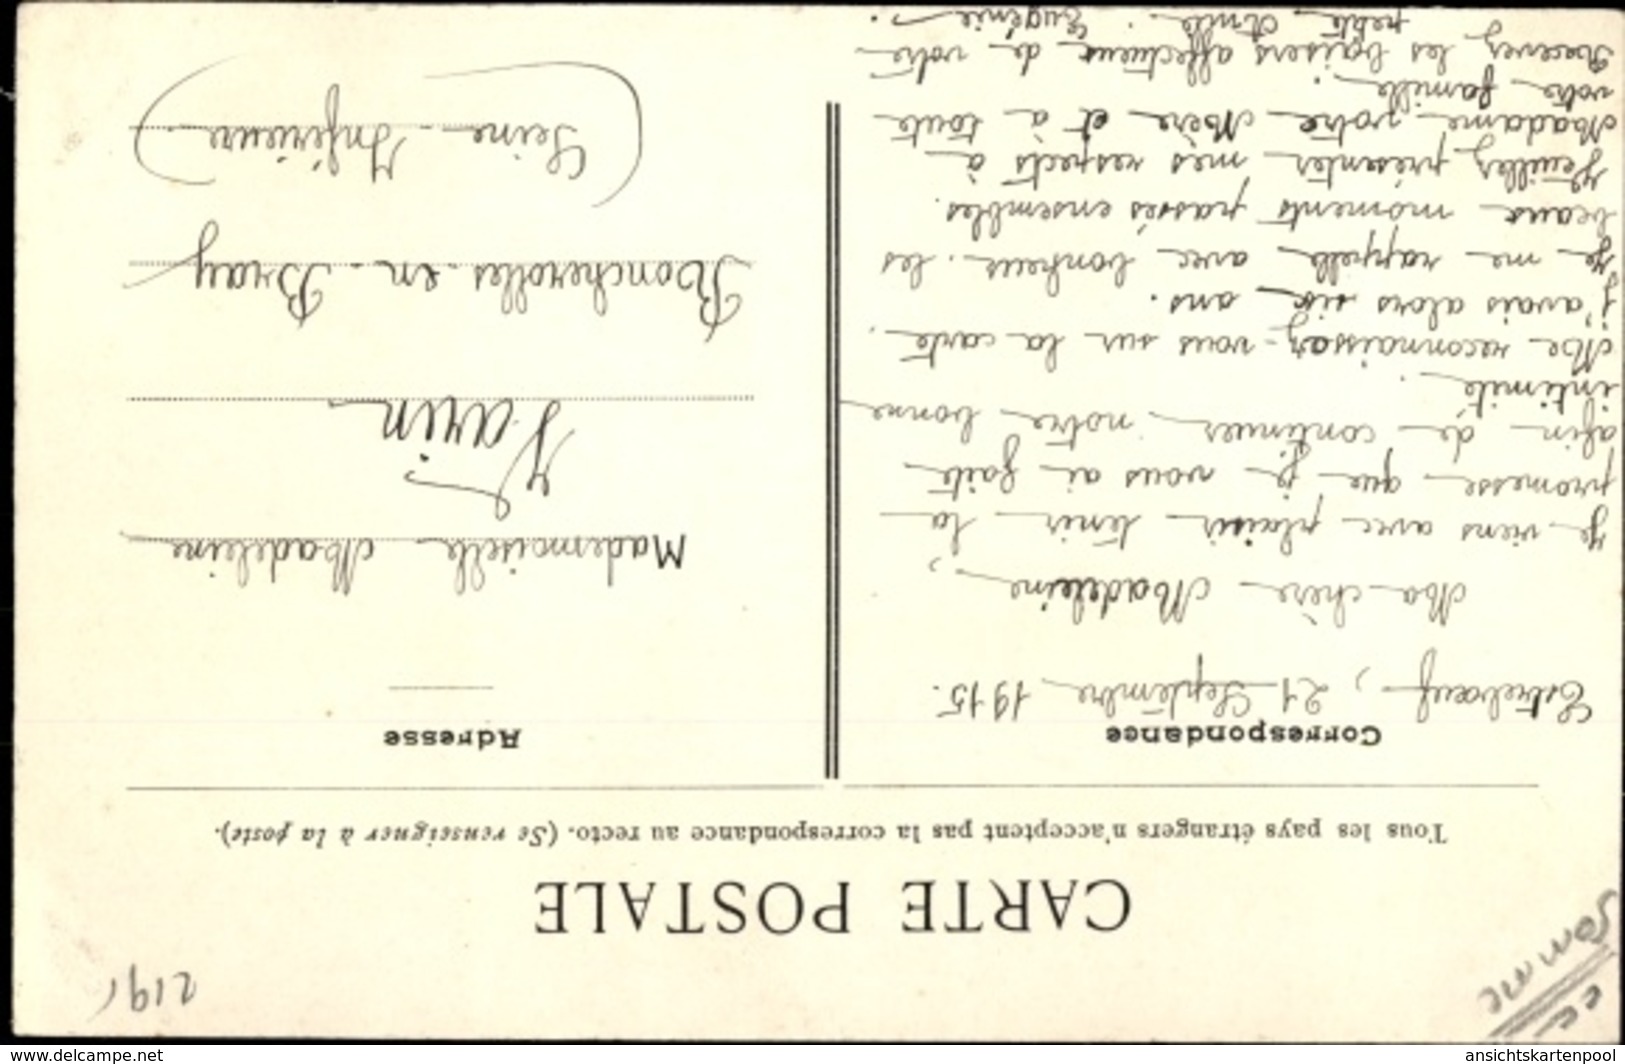 CC
Somme
2191
CARTE POSTALE
Tous les pays étrangers n'acceptent pas la correspondance au recto. (Se renseigner à la poste).
Correspondance
Estrebœuf, 21 Septembre 1915.
Ma chère Madeleine,
Je viens avec plaisir tenir la
promesse que je vous ai faite
afin de continuer notre bonne
intimité.
Me reconnaissez-vous sur la carte.
j'avais alors six ans.
Je me rappelle avec bonheur les
beaux moments passés ensembles.
Veuillez présenter mes respects à
Madame votre Mère et à toute
votre famille.
Recevez les baisers affectueux de votre
petite Amie. Eugénie.
Adresse
Mademoiselle Madeleine
Varin
Roncherolles-en-Bray
Seine-Inférieure
www.delcampe.net
ansichtskartenpool